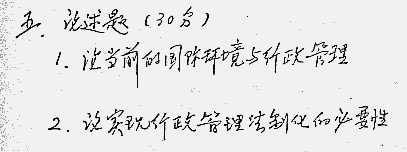 五、论述题（30分）
1. 论当前的国际环境与行政管理
2. 论实现行政管理法制化的必要性